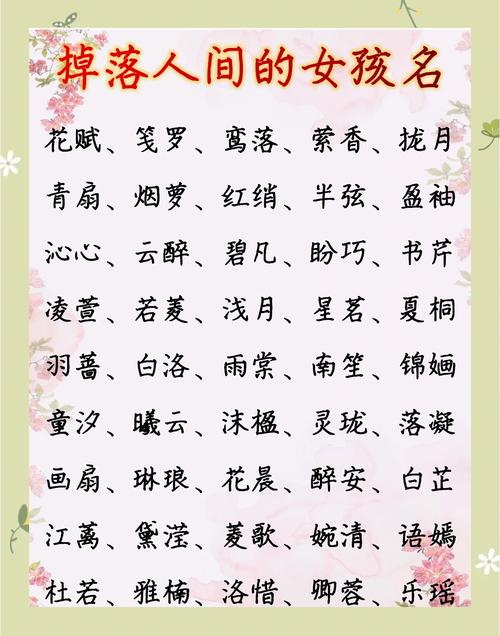 掉落人间的女孩名
花赋、笺罗、鸾落、萦香、拢月
青扇、烟萝、红绡、半弦、盈袖
沁心、云醉、碧凡、盼巧、书芹
凌萱、若菱、浅月、星茗、夏桐
羽蔷、白洛、雨棠、南笙、锦婳
童汐、曦云、沫楹、灵珑、落凝
画扇、琳琅、花晨、醉安、白芷
江蓠、黛滢、菱歌、婉清、语嫣
杜若、雅楠、洛惜、卿蓉、乐瑶